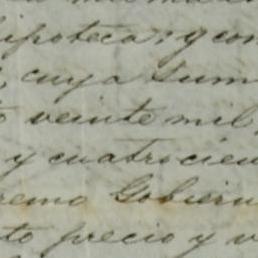 hipoteca; y con
cuya sum
veinte mil
y cuatrocien
remo Gobiern
to precio y v